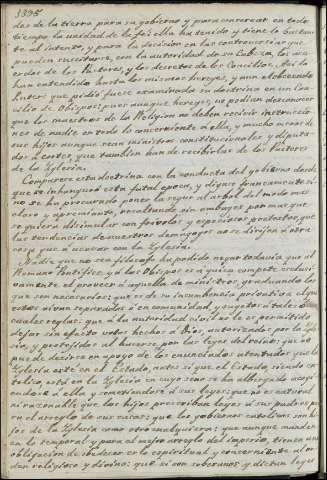 1395
des de la tierra para su gobierno y para conservar en todo
tiempo la unidad de la fe; ella ha tenido y tiene lo bastan-
te al intento, y para la decision en las controversias que
puedan suscitarse, con la autoridad de su Cabeza, los acu-
erdos de los Pastores, y los decretos de los Concilios. Asi lo
han entendido hasta los mismos hereges, y aun el obcecado
Lutero que pidió fuese examinada su doctrina en un Con-
cilio de Obispos; pues aunque hereges, no podian desconocer
que los maestros de la Religion no deben recivir instruccio-
nes de nadie en todo lo concerniente a ella, y mucho menos de
sus hijos aunque sean ministros constitucionales y diputa-
dos á cortes que tambien han de recibirlas de los Pastores
de la Iglesia.
Comparese esta doctrina con la conducta del gobierno desde
que se inauguró esta fatal epoca, y digase francamente si
no se ha procurado poner la segur al arbol del modo mas
claro y apremiante, recatando sin embages por mas que
se quiera disimular con frívolos y especiosos pretestos, que
las tendencias de nuestros demagogos no se dirijen á otra
cosa que á acabar con la Iglesia.
Nadie que no sea filosofo ha podido negar todavia que al
Romano Pontifice y á los Obispos es a quien compete esclusi-
vamente el proveer á aquella de ministros, graduando los
que son necesarios: que es de su incumbencia prioritaria el que
estos vivan separados ó en comunidad, y sugetos á tales ó
cuales reglas: que á la autoridad civil no le es permitido
dejar sin efecto votos hechos á Dios, autorizados por la Igle-
sia, y protejidos al hacerse, por las leyes del reino: que no
puede decirse en apoyo de los enunciados atentados que la
Iglesia esté en el Estado, antes si que el Estado, siendo ca-
tolico, está en la Iglesia en cuyo seno se ha albergado acojí-
endose á ella y sometiendose á sus leyes; que no es natural
ni racional, que los hijos prescriban leyes á sus padres pa-
ra el arreglo de sus casas: que los gobiernos catolicos son hi-
jos de la Iglesia como otro cualquiera: que aunque manden
en lo temporal y para el mejor arreglo del imperio, tienen una
obligacion de obedecer en lo espiritual y concerniente al or-
den religioso y divino: que si son soberanos y dictan leyes